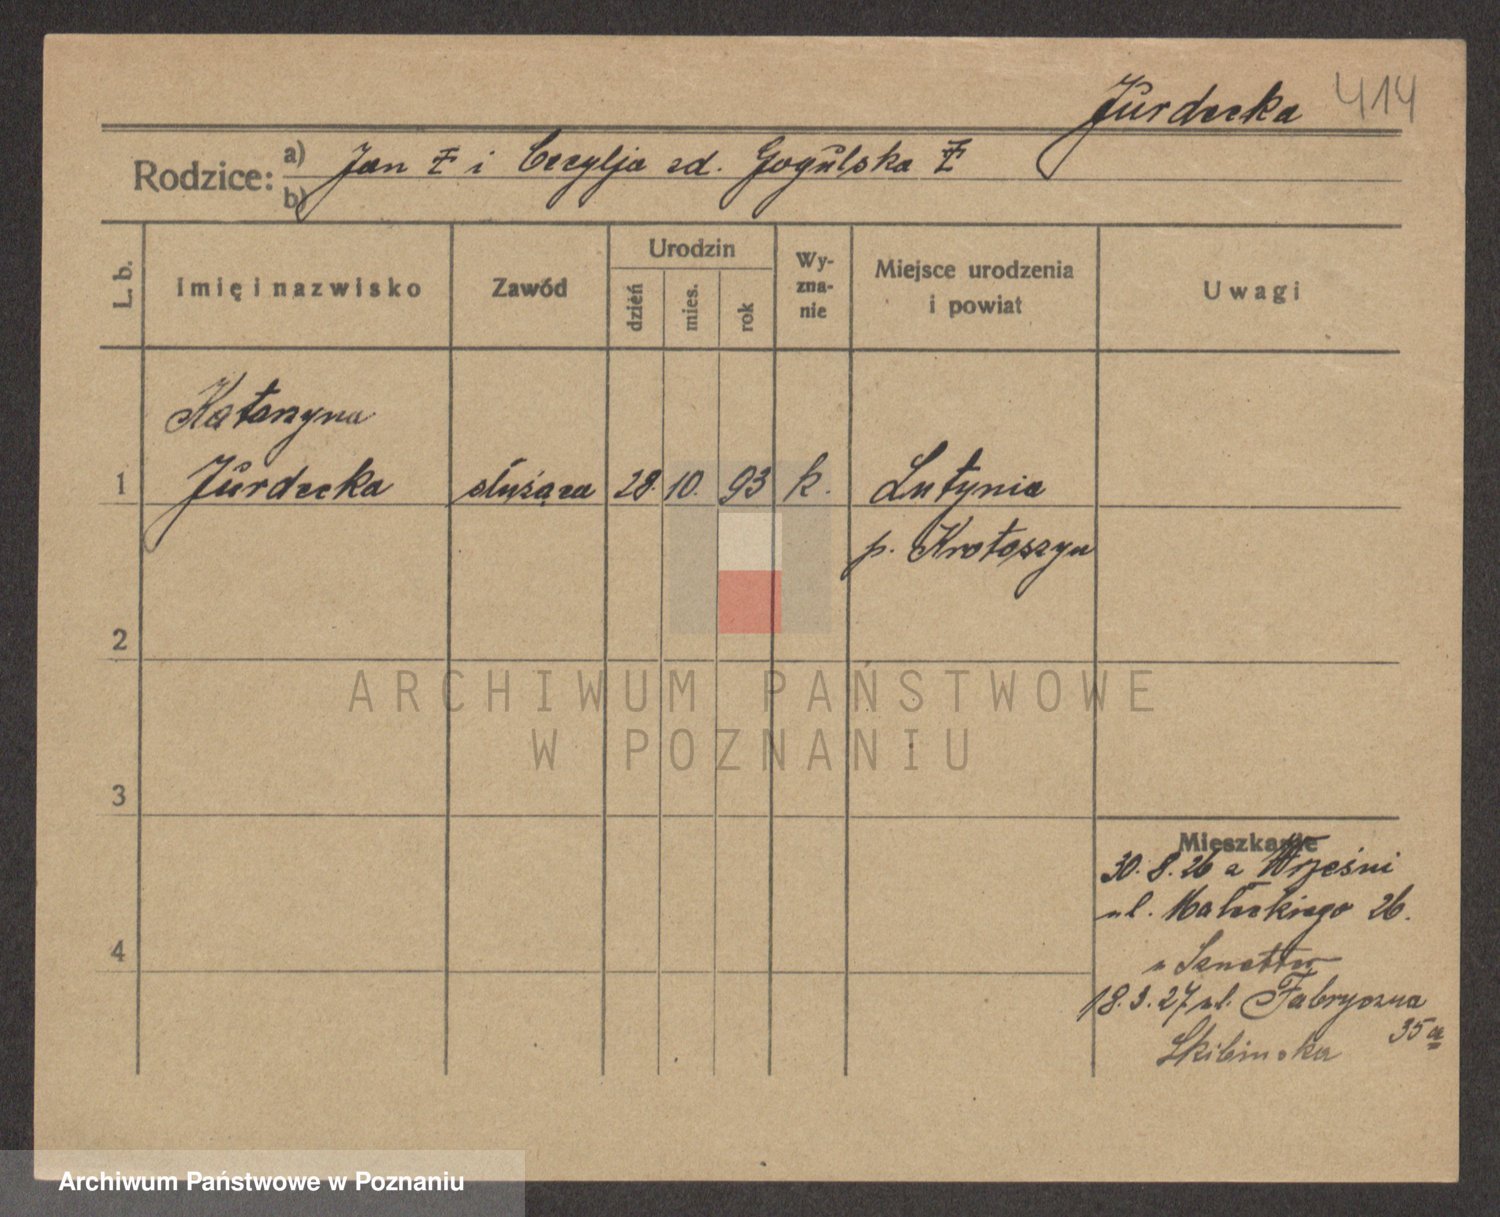 Jurdecka 414
Rodzice: a) Jan Ł i Cecylja zd. Gogulska Ł
b)
L. b.
Imię i nazwisko
Zawód
Urodzin
dzień
mies.
rok
Wy-
zna-
nie
Miejsce urodzenia
i powiat
Uwagi
Katarzyna
1 Jurdecka służąca 28. 10. 93 k. Lutynia
p. Krotoszyn
2
3
4
ARCHIWUM PAŃSTWOWE
W POZNANIU
Mieszkanie
30. 8. 26 z Wrześni
ul. Małeckiego 26.
18. 3. 27 ul. Fabryczna
35a
Skibinska
Archiwum Państwowe w Poznaniu